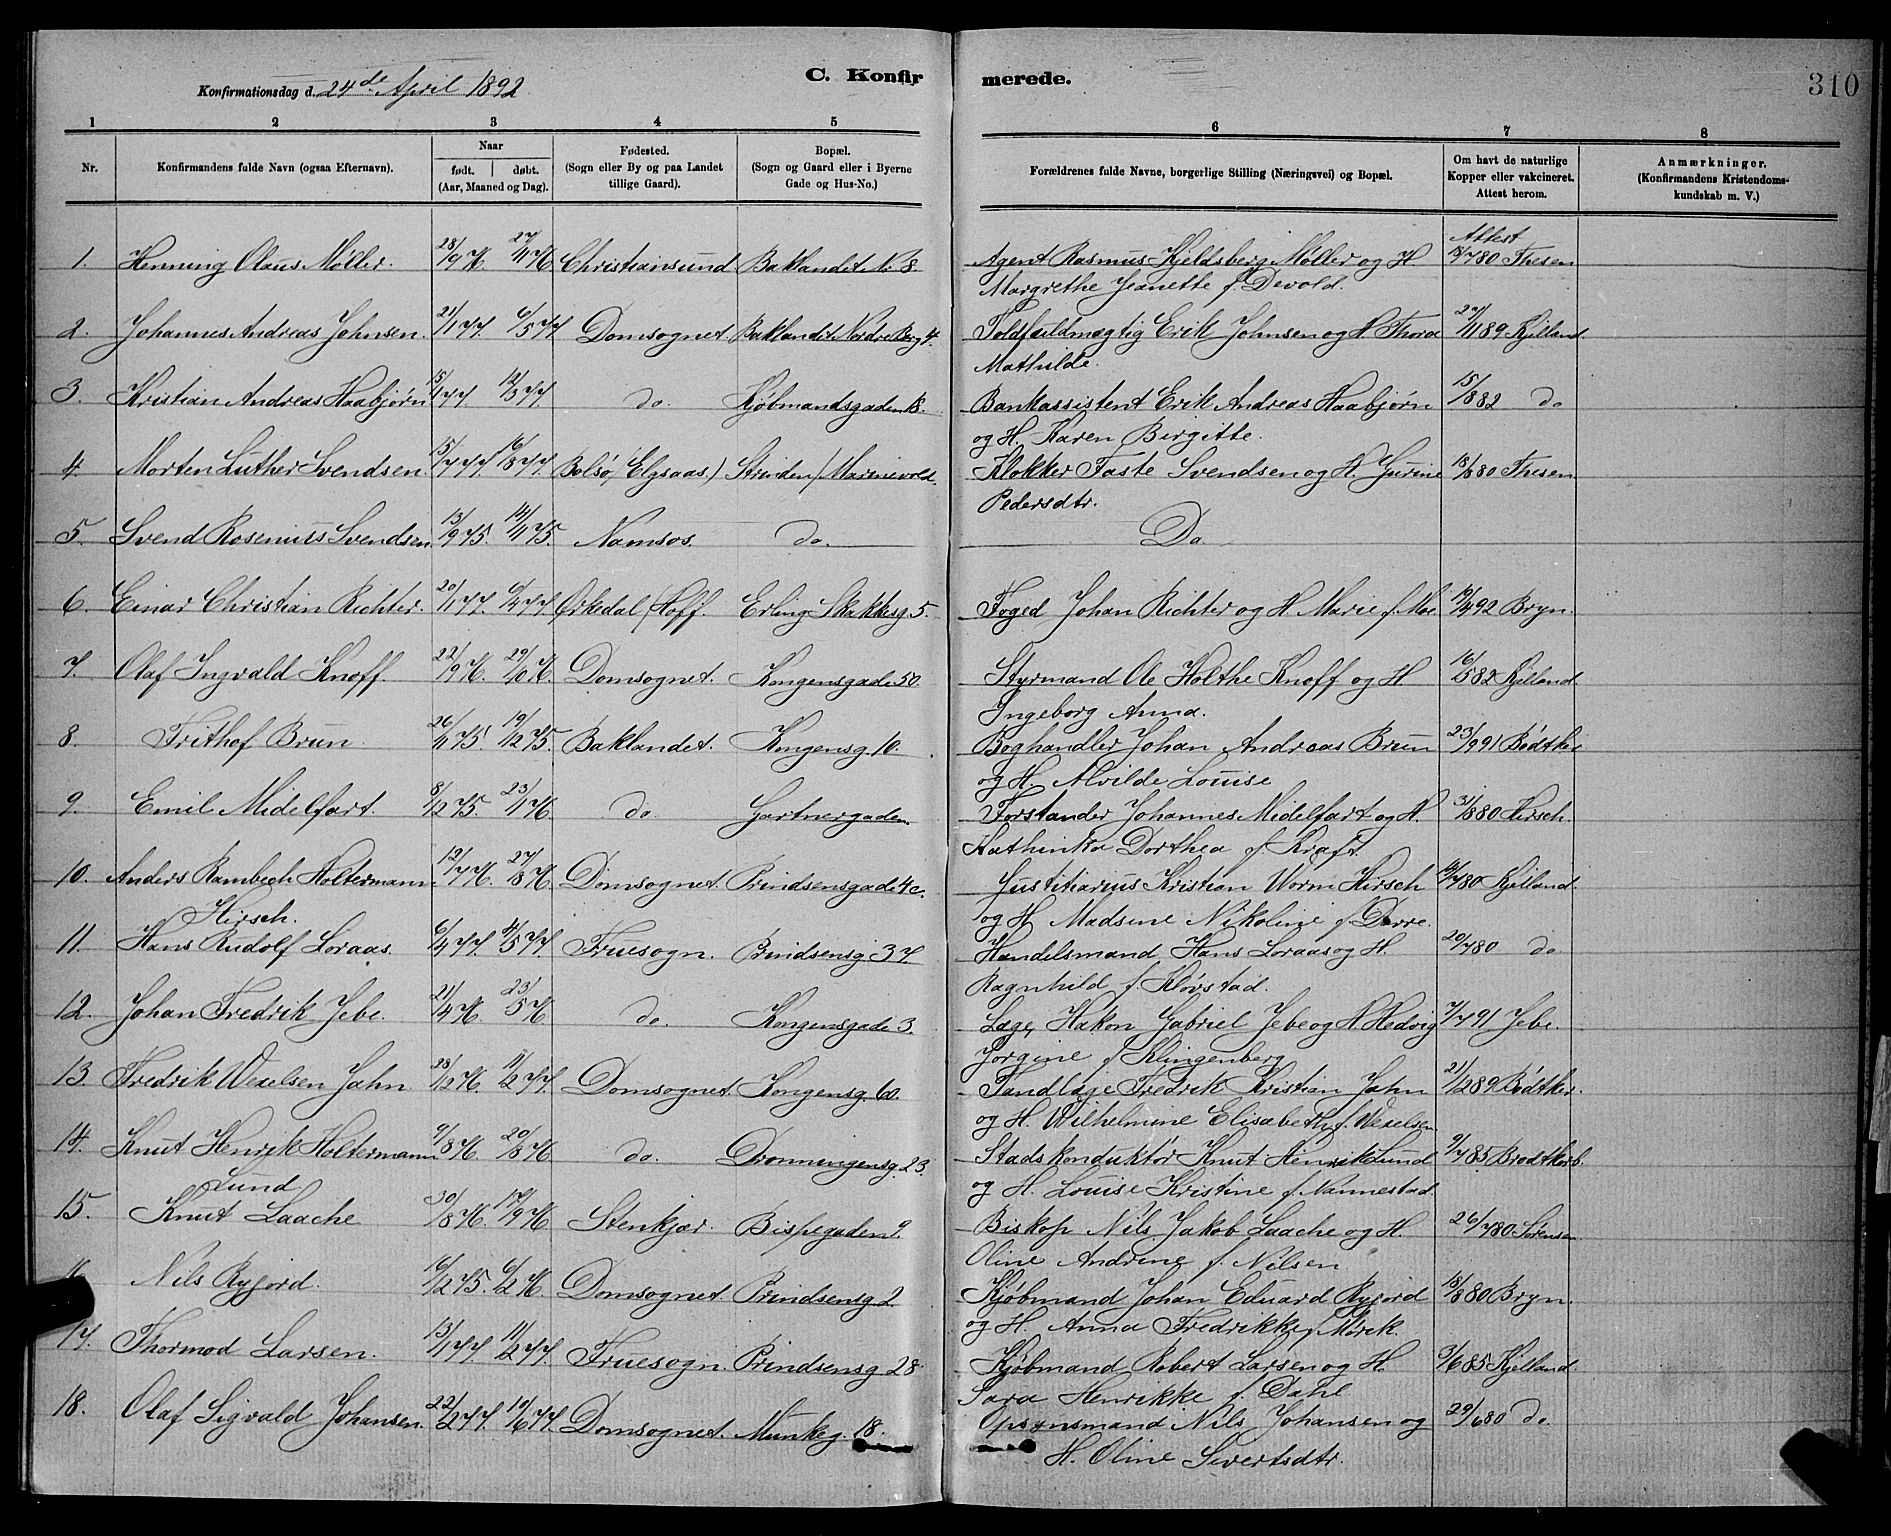 Konfirmationsdag d. 24de April 1892
C. Konfirmerede.
310
1 2 3 4 5 6 7 8
Nr.
Konfirmandens fulde Navn (ogsaa Efternavn).
Naar
født. døbt.
(Aar, Maaned og Dag).
Fødested.
(Sogn eller By og paa Landet
tillige Gaard).
Bopæl.
(Sogn og Gaard eller i Byerne
Gade og Hus-No.)
Forældrenes fulde Navne, borgerlige Stilling (Næringsvei) og Bopæl.
Om havt de naturlige
Kopper eller vakcineret.
Attest herom.
Anmærkninger.
(Konfirmandens Kristendoms-
kundskab m. V.)
Attest
1. Henning Olaus Møller. 28/9 76 27/11 76 Christiansund Baklandet No 8 Agent Rasmus Kjeldsberg Møller og H. 12/7 80 Thesen
Margrethe Jeanette f. Devold.
2. Johannes Andreas Johnsen. 21/1 77. 6/5 77 Domsognet. Baklandet Nordre Berg 4. Toldfuldmægtig Erik Johnsen og H. Thora 22/11 89 Kjelland.
Mathilde.
3. Kristian Andreas Haabjørn 15/1 77. 12/3 77. do. Kjøbmandsgaden 18. Bankassistent Erik Andreas Haabjørn 15/8 82 do
og H. Karen Birgitte.
4. Morten Luther Svendsen 15/7 77. 16/8 77. Bolsø (Elgsaas.) Strinden (Marienvold. Klokker Taste Svendsen og H. Gurine 18/8 80 Thesen
Pedersdtr.
5. Svend Rosenius Svendsen 13/9 75. 14/11 75. Namsos. do. Do
6. Einar Christian Richter. 20/1 77. 6/4 77. Ørkedal (Hoff. Erling Skakkesg 5. Foged Johan Richter og H. Marie f. Moe 19/4 92 Bryn.
7. Olaf Ingvald Knoff. 22/9 76. 29/10 76. Domsognet. Kongensgade 50. Styrmand Ole Holthe Knoff og H. 16/5 82 Kjelland
Ingeborg Anna.
8. Frithof Brun. 26/11 75. 19/12 75. Baklandet. Kongensg 10. Boghandler Johan Andreas Brun 23/9 91 Bødtker
og H. Alvilde Louise
9. Emil Midelfart. 8/12 75. 23/1 76 do. Gartnergaden. Forstander Johannes Midelfart og H. 31/8 80 Hirsch.
Kathinka Dorthea f. Kraft.
10. Anders Rambech Holtermann 12/7 76. 27/8 76 Domsognet. Prindsensgade 4c. Justitiarius Kristian Worm Hirsch /7 80 Kjelland.
Hirsch. og H. Madsine Nikoline f. Darre.
11. Hans Rudolf Loraas. 6/4 77. 4/5 77. Fruesogn. Prindsensg. 37. Handelsmand Hans Loraas og H. 20/7 80 do
Ragnhild f. Kløvstad.
12. Johan Fredrik Jebe. 21/4 76. 23/5 76. do. Kongensgade 3 Læge Hakon Gabriel Jebe og H. Hedvig 7/7 91 Jebe.
Jørgine f. Klingenberg
13. Fredrik Wexelsen Jahn 28/12 76. 11/2 77. Domsognet. Kongensg. 60. Tandlæge Fredrik Kristian Jahn 21/12 89 Bødtker.
og H. Wilhelmine Elisabeth f. Wexelsen
14. Knut Henrik Holtermann 9/8 76. 20/8 76 do. Dronningensg. 23. Stadskonduktør Knut Henrik Lund 9/7 85 Brodtkorb.
Lund og H. Louise Kristine f. Nannestad.
15. Knut Laache 30/8 76. 17/9 76 Stenkjær. Bispegaden 9. Biskop Nils Jakob Laache og H. 26/7 80 Sørensen
Oline Andrine f. Nilsen
16. Nils Ryjord. 16/12 75. 6/2 76. Domsognet. Prindsensg 2 Kjøbmand Johan Eduard Ryjord 13/8 80 Bryn.
og H. Anna Fredrikke f. Mørck.
17. Thormod Larsen. 13/1 77. 11/2 77. Fruesogn. Prindsensg 28. Kjøbmand Robert Larsen og H. 3/6 85 Kjelland.
Sara Henrikke f. Dahl.
18. Olaf Sigvald Johansen. 22/2 77. 10/6 77. Domsognet. Munkeg. 18. Opsynsmand Nils Johansen og 29/6 80 do.
H. Oline Sivertsdtr.